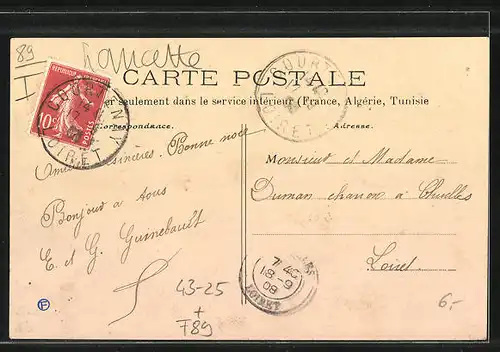 89
I
Lancette
CARTE POSTALE
er seulement dans le service intérieur (France, Algérie, Tunisie
Correspondance.
Adresse.
REPUBLIQUE
10c
POSTES
COURTENAY
LOIRET
COURTE
LOIRET
Bonne noce
Bonjour à tous
E et G. Guinebault
Monsieur et Madame
Duman à Chuelles
Loiret
7 45
18-9
08
LOIRET
43-25
+
F89
6.-